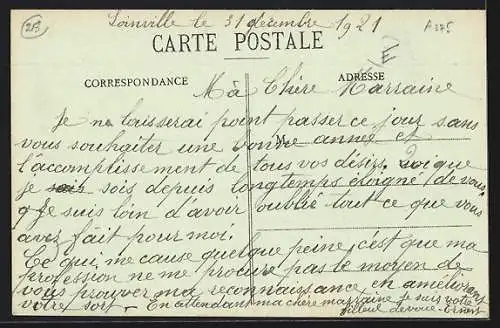 213
Loinville le 31 décembre 1921
A 375
CARTE POSTALE
E
CORRESPONDANCE
ADRESSE
Mà Chère Marraine
Je ne laisserai point passer ce jour sans
vous souhaiter une bonne année et
M
l'accomplissement de tous vos désirs. Quoique
je sois depuis longtemps éloigné de vous
Je suis loin d'avoir oublié tout ce que vous
avez fait pour moi.
Ce qui me cause quelque peine, c'est que ma
profession ne me procure pas le moyen de
vous prouver ma reconnaissance, en améliorant
votre sort. En attendant ma chère marraine je suis votre
filleul dévoué. Ernest